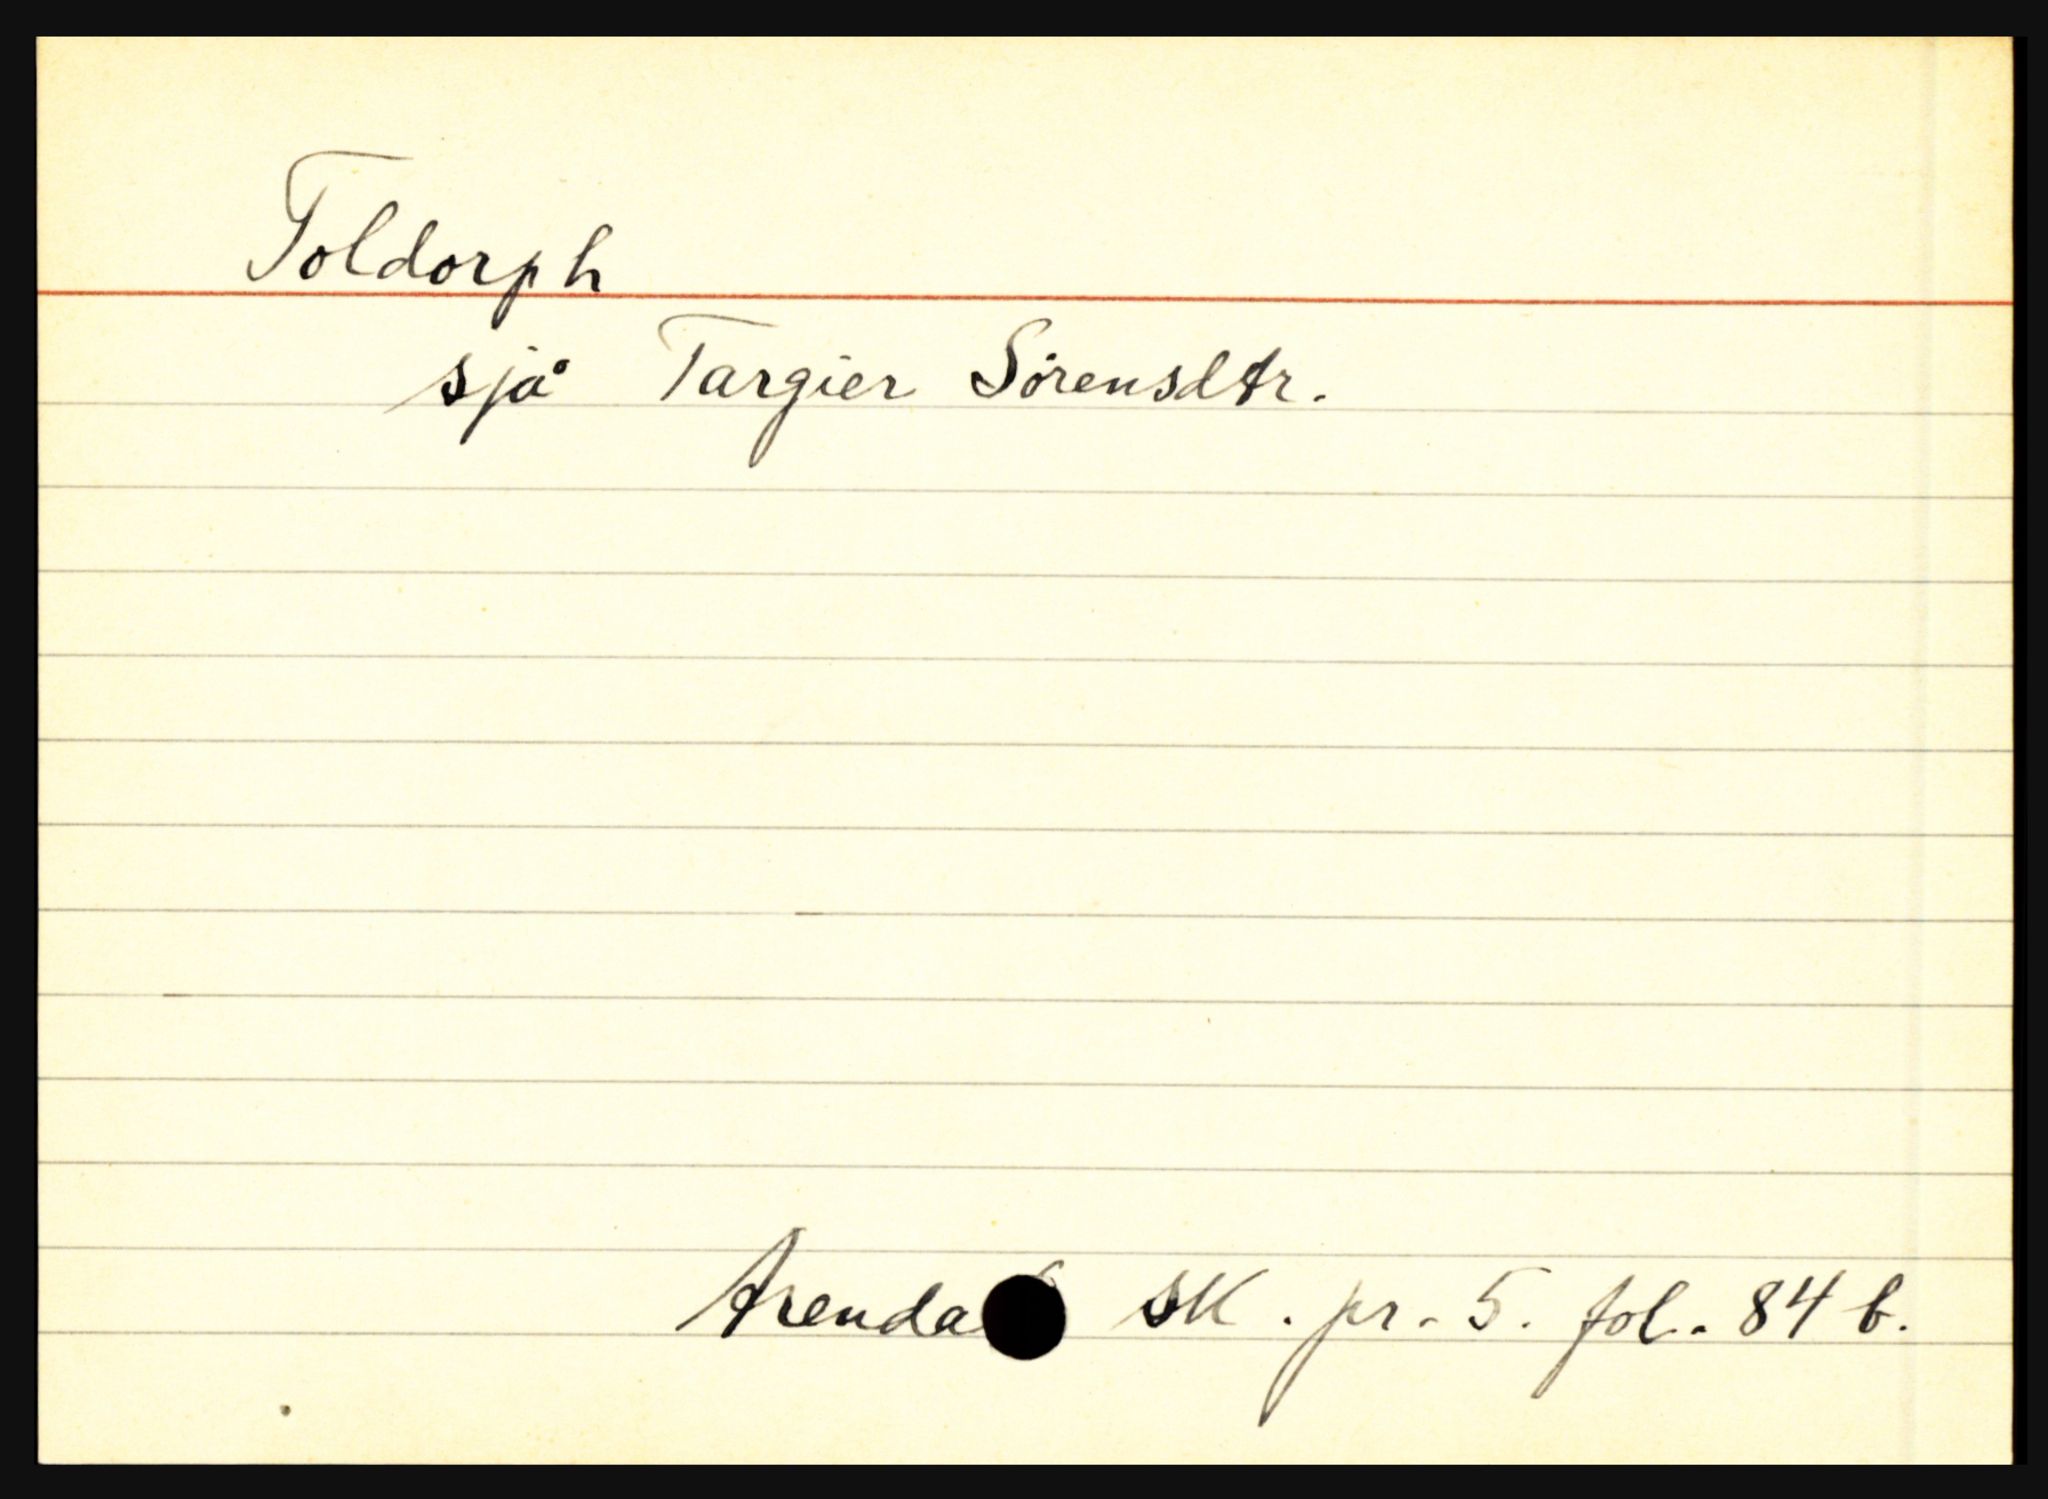 Toldorph
sjå Targier Sørensdtr.
Arendal sk. pr. 5. fol. 84 b.